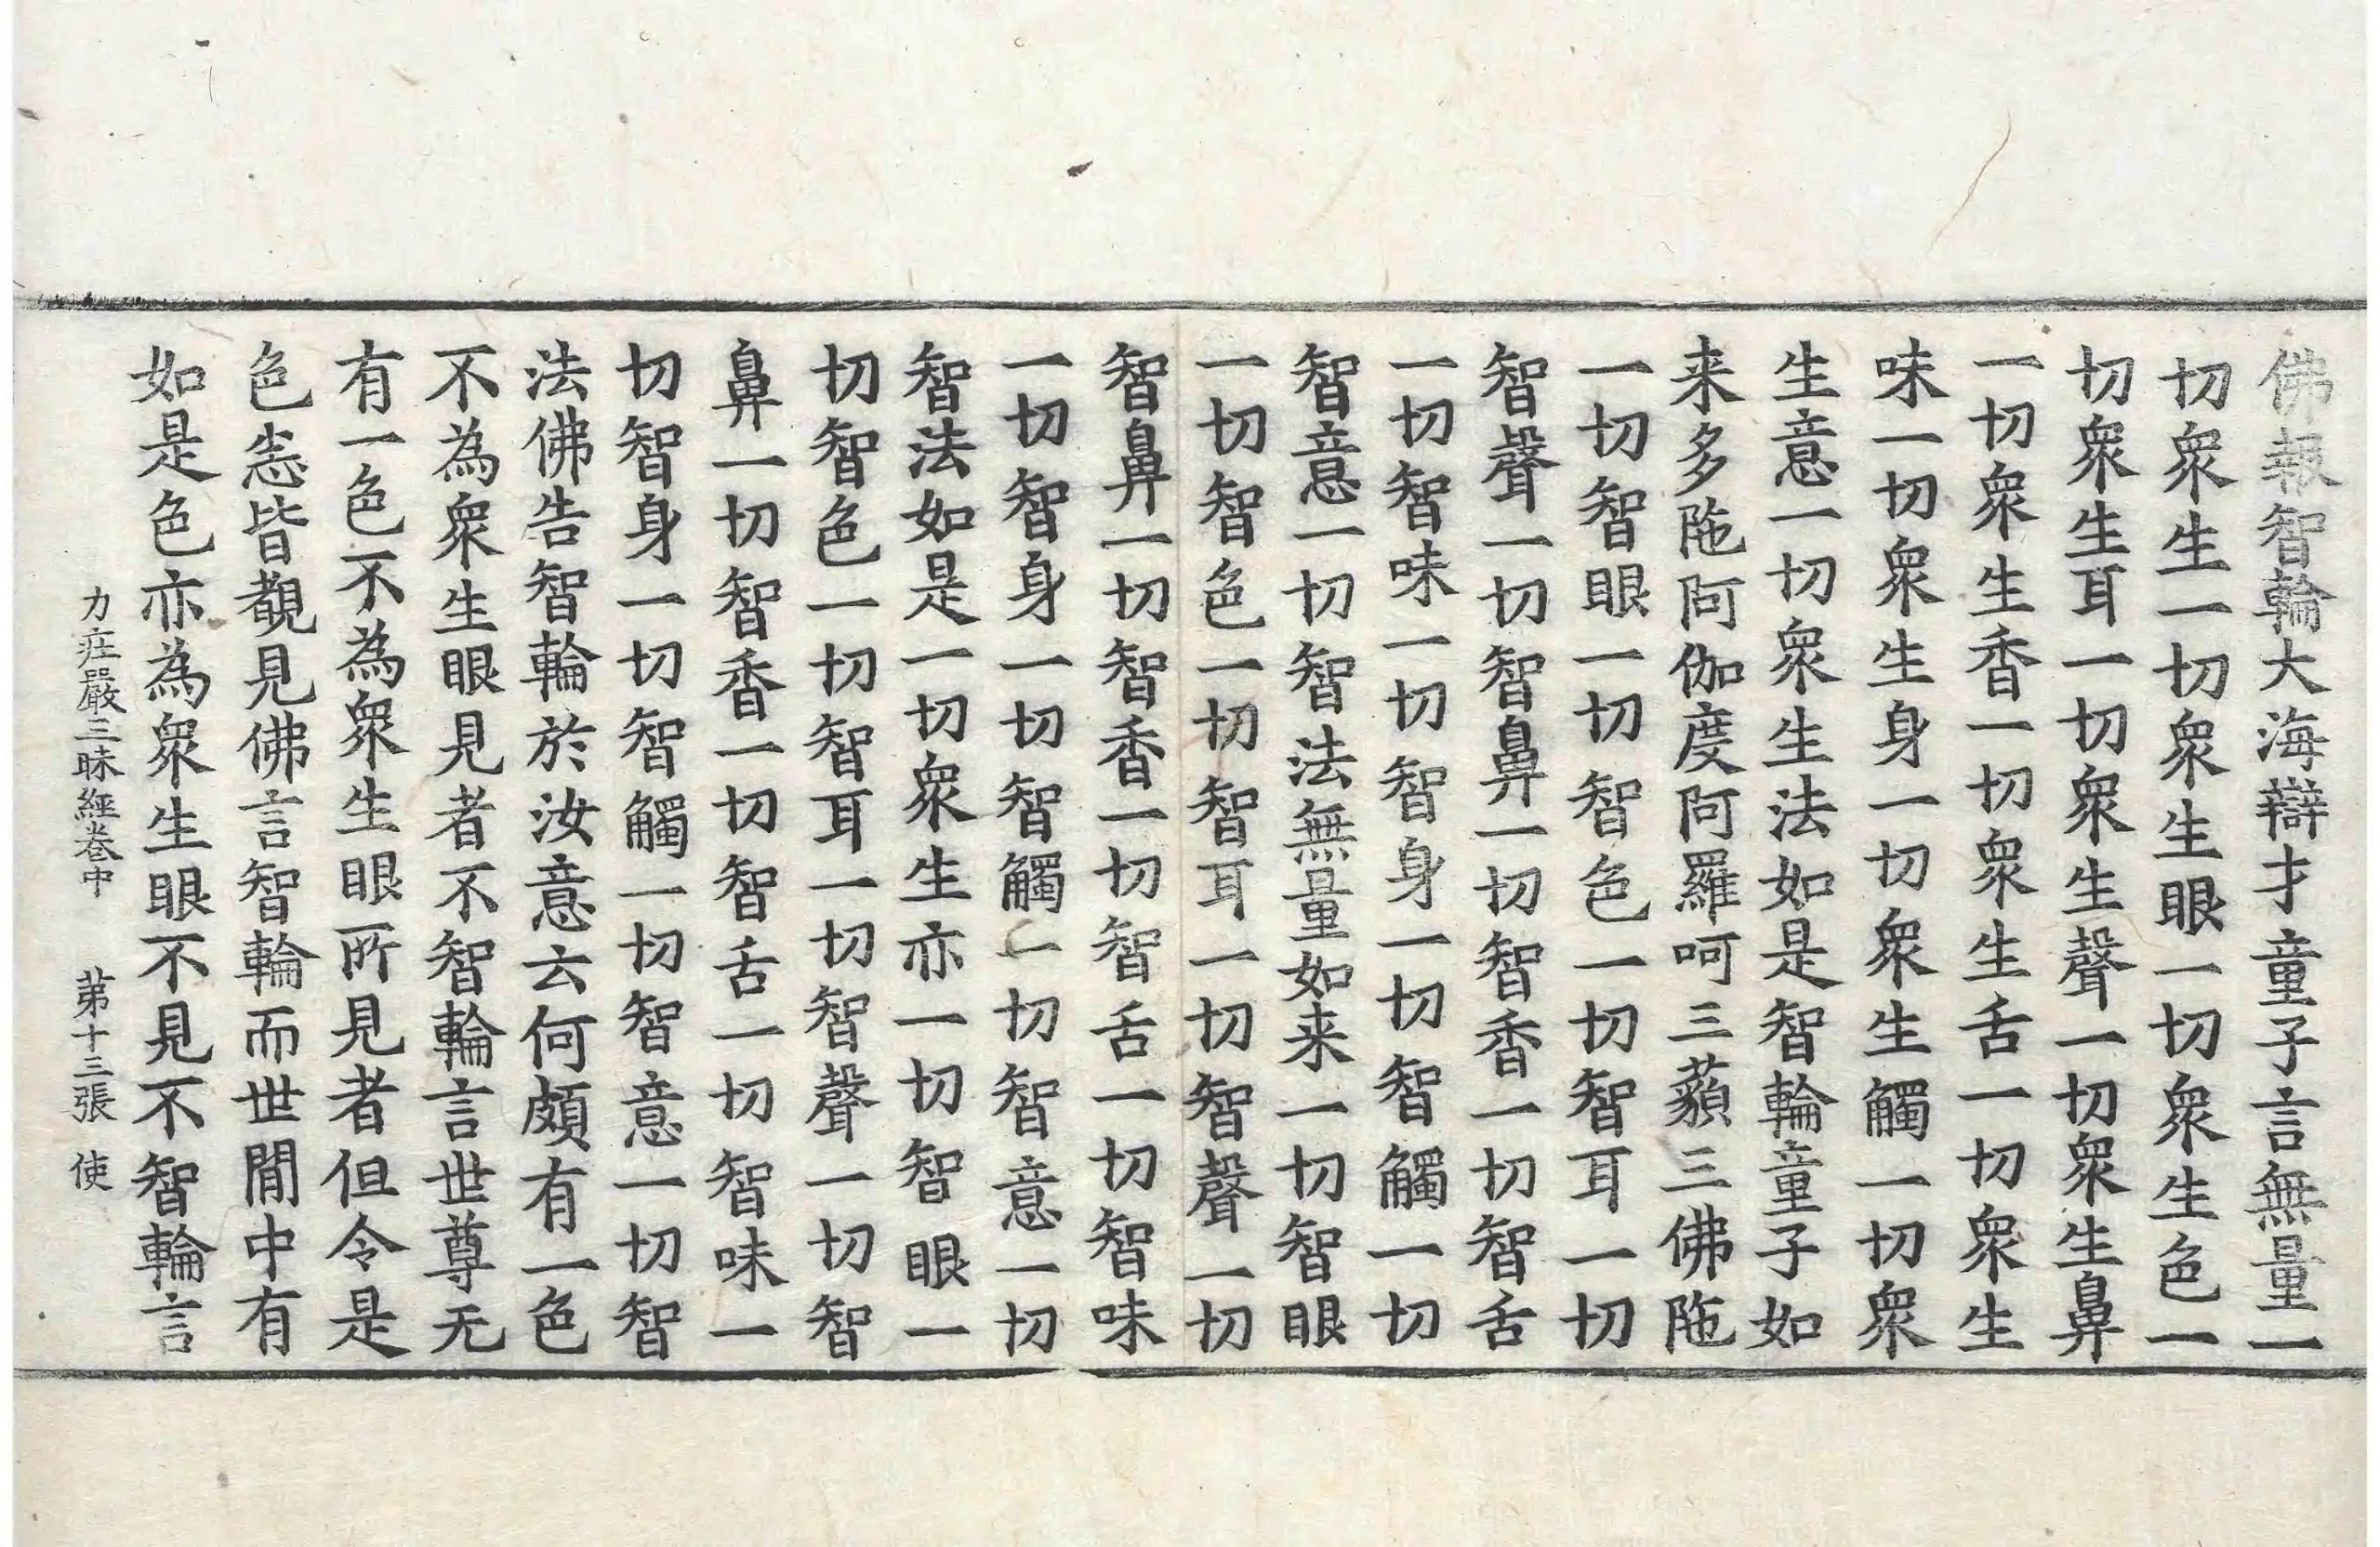 佛報智輪大海辯才童子言無量一
切衆生一切衆生眼一切衆生色一
切衆生耳一切衆生聲一切衆生鼻
一切衆生香一切衆生舌一切衆生
味一切衆生身一切衆生觸一切衆
生意一切衆生法如是智輪童子如
来多陁阿伽度阿羅呵三藐三佛陁
一切智眼一切智色一切智耳一切
智聲一切智鼻一切智香一切智舌
一切智味一切智身一切智觸一切
智意一切智法無量如来一切智眼
一切智色一切智耳一切智聲一切
智鼻一切智香一切智舌一切智味
一切智身一切智觸一切智意一切
智法如是一切衆生亦一切智眼一
切智色一切智耳一切智聲一切智
鼻一切智香一切智舌一切智味一
切智身一切智觸一切智意一切智
法佛告智輪於汝意云何頗有一色
不為衆生眼見者不智輪言世尊无
有一色不為衆生眼所見者但令是
色悉皆覩見佛言智輪而世閒中有
如是色亦為衆生眼不見不智輪言
力庄嚴三昧經卷中 苐十三張 使